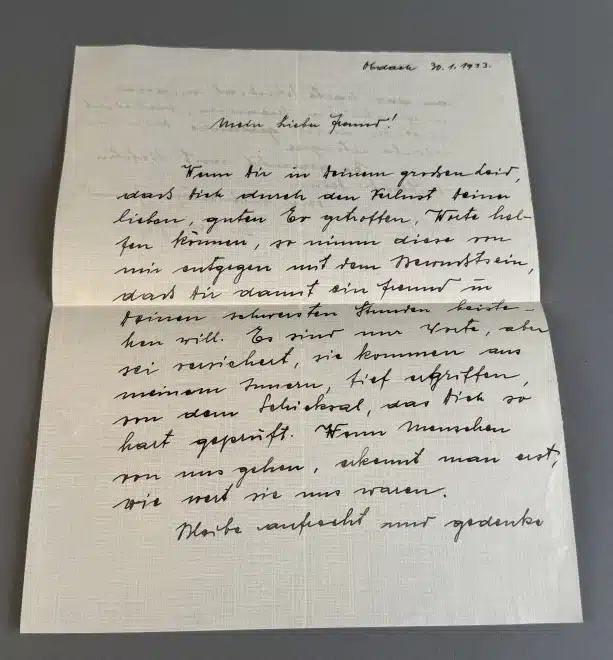 Obdach 30.1.1933.
Mein lieber Freund!
Wenn Dir in Deinem großen Leid,
daß Dich durch den Verlust Deiner
lieben, guten Ev getroffen, Worte hel-
fen können, so nimm diese von
mir entgegen mit dem Bewusstsein,
daß Dir damit ein Freund in
Deinen schwersten Stunden beiste-
hen will. Es sind nur Worte, aber
sei versichert, sie kommen aus
meinem Innern, tief ergriffen,
von dem Schicksal, das Dich so
hart geprüft. Wenn Menschen
von uns gehen, erkennt man erst,
wie wert sie uns waren.
Bleibe aufrecht und gedenke